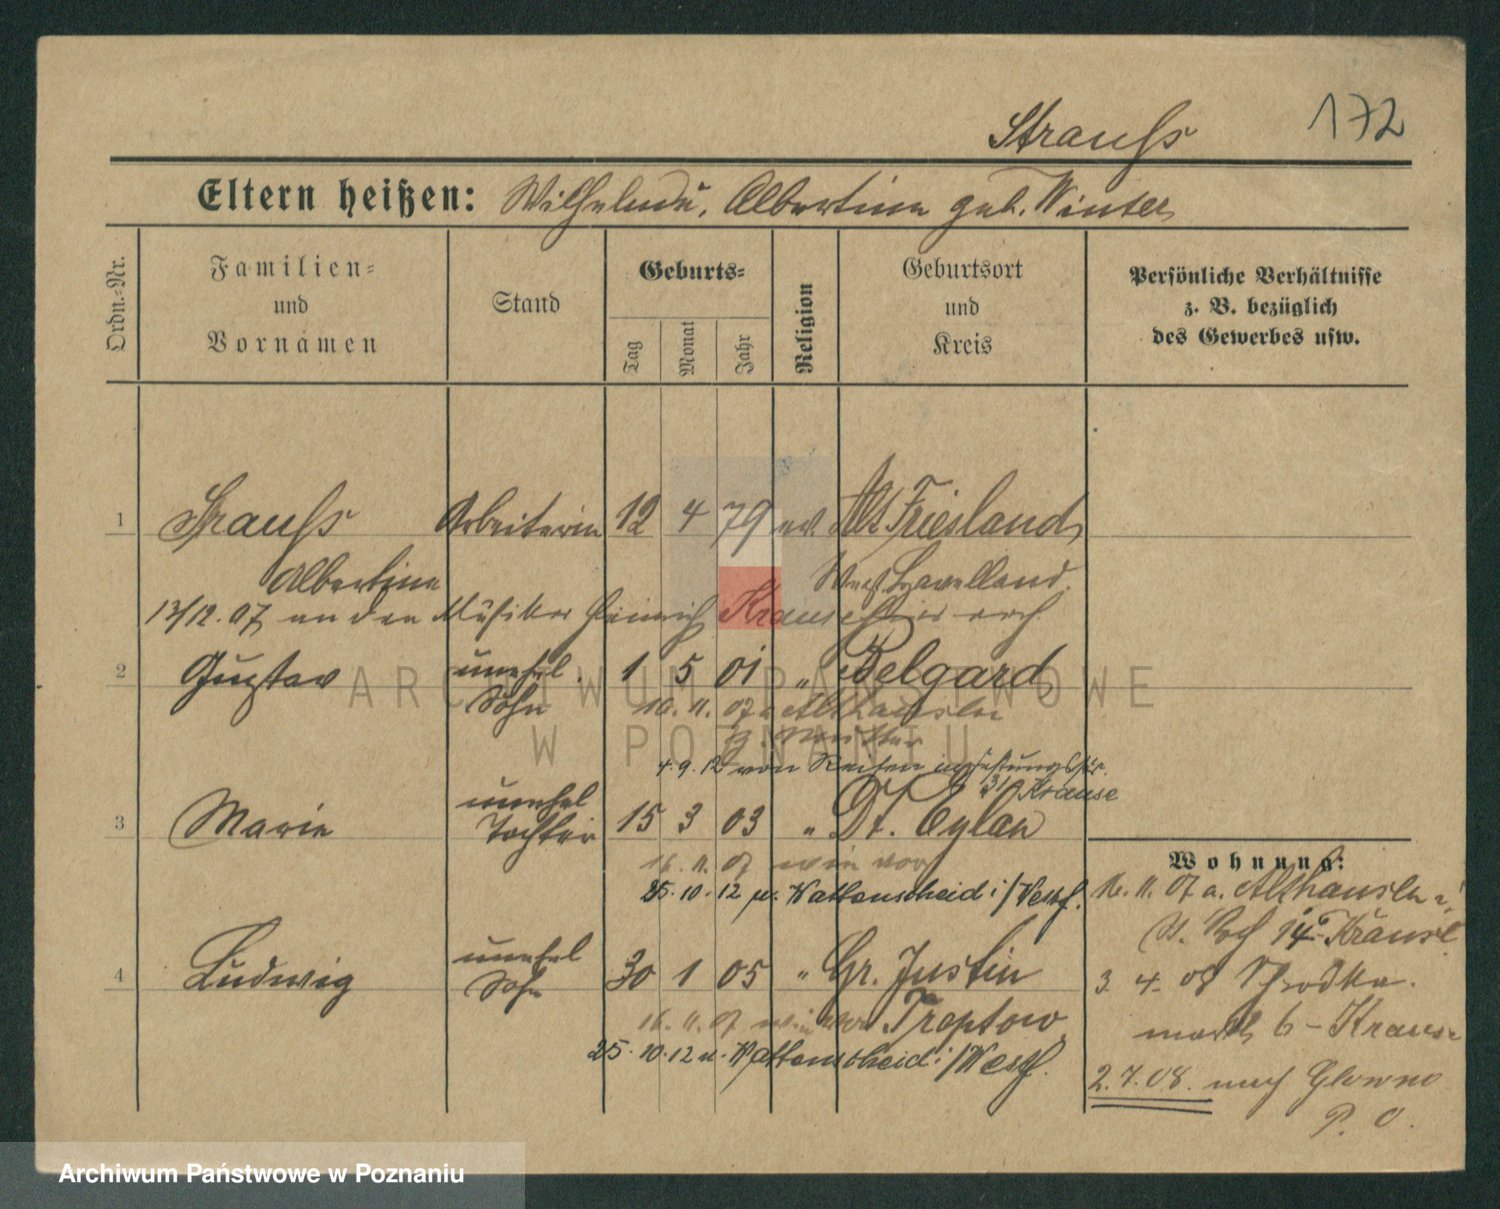 172
Strauss
Eltern heißen: Wilhelm u. Albertine geb. Winter
Ordn.-Nr.
Familien-
und
Vornamen
Stand
Geburts-
Tag
Monat
Jahr
Religion
Geburtsort
und
Kreis
Persönliche Verhältnisse
z. B. bezüglich
des Gewerbes usw.
1 Strauss Arbeiterin 12 4 79 ev. Alt Friesland
Albertine West Havelland
13/12. 07 an den Musiker Heinrich Krause
2 Gustav unehel. 1 5 01 " Belgard
Sohn 16. 11. 07 a. Althausen
4. 9. 12 von Reisen
31 Krause
3 Marie unehel 15 3 03 " Dt. Eylau
Tochter
16. 11. 07 wie vor
25. 10. 12 n. Wattenscheid i/Westf.
4 Ludwig unehel 30 1 05 " Gr. Justin
Sohn
16. 11. 07 wie vor Treptow
25. 10. 12 n. Wattenscheid i/Westf.
Wohnung:
16. 11. 07 a. Althausen
14 Krause
3. 4. 08 Schrodka
markt 6 - Krause
2. 7. 08. nach Glowno
P. O.
ARCHIWUM PAŃSTWOWE
W POZNANIU
Archiwum Państwowe w Poznaniu